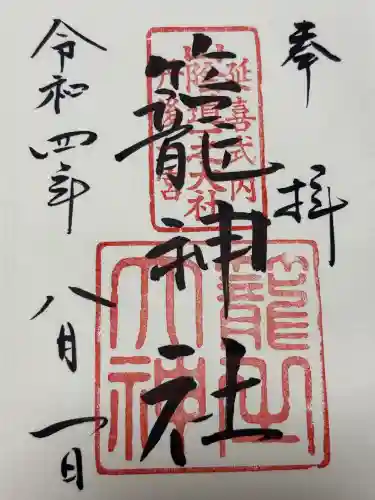 奉拝
籠神社
令和四年 八月一日
延喜式内